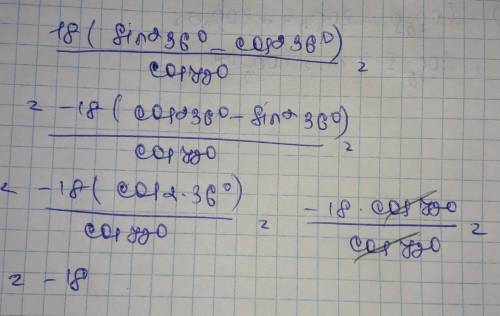 18 ( sin² 36° – cos² 36° ) / cos 72° =
= –18 ( cos² 36° – sin² 36° ) / cos 72° =
= –18 ( cos 2·36° ) / cos 72° = –18 · cos 72° / cos 72° =
= –18